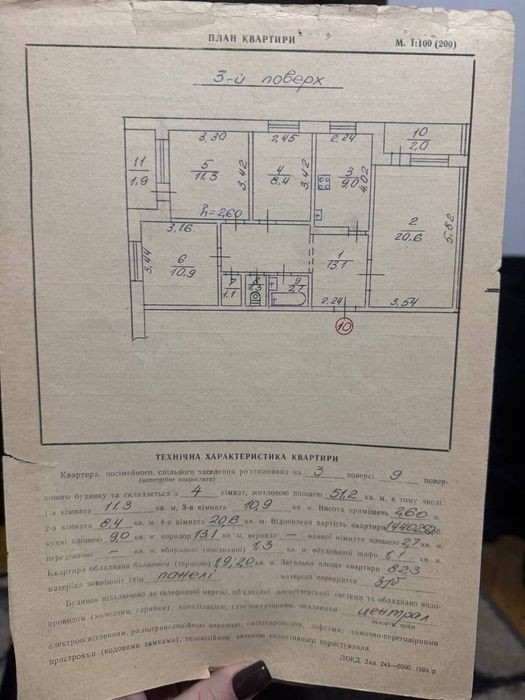 ПЛАН КВАРТИРИ
М. 1:100 (200)
3-й поверх
10
2,0
3.30
2.45
2.24
11
1.9
5
11.3
3.42
4
8.4
3.42
3
9,0
4.02
2
20.6
5.82
h=2,60
3.16
3.44
6
10.9
1
13.1
7
1.1
8
1.3
9
2.7
2.24
3.54
10
ТЕХНІЧНА ХАРАКТЕРИСТИКА КВАРТИРИ
Квартира, посімейного, спільного заселення розташована на 3 поверсі 9 повер-
(непотрібне викреслити)
хового будинку та складається з 4 кімнат, житловою площею 51,2 кв. м, в тому числі
1-а кімната 11,3 кв. м, 3-я кімната 10,9 кв. м. Висота приміщень 2,60 м.
2-а кімната 8,4 кв. м, 4-а кімната 20,6 кв. м. Відновлена вартість квартири
кухні площею 9,0 кв. м, коридор 13,1 кв. м, веранди — ванної кімнати площею 2,7 кв. м,
передпокою — кв. м, вбиральні (поєднаної) 1,3 кв. м, вбудованої шафи 1,1 кв. м.
Квартира обладнана балконом (терасою) 1,9, 2,0 кв. м. Загальна площа квартири 82,3
матеріал зовнішніх стін панелі матеріал перекриття з/б
Будинок підключено до телефонної мережі, об'єднаної диспетчерської системи та обладнано водо-
проводом (холодним, гарячим), каналізацією, газопостачанням, опаленням централ
вказати яким
електроосвітленням, радіотрансляційною мережею, сміттєпроводом, ліфтами, замочно-переговорними
пристроями (кодовими замками), телевізійною антеною колективного користування.
ЛОКД. Зам. 245—5000. 1994 р.